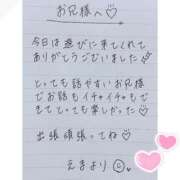 お兄様へ♡
今日は遊びに来てくれて
ありがとうございました
とっても話やすいお兄様
でお話もイチャイチャもで
きてとっても楽しかった♡
出張頑張ってね♡
えまより